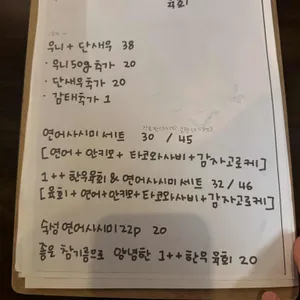 육회
우니 + 단새우 38
· 우니50g추가 20
· 단새우추가 20
· 감태추가 1
연어사시미 세트 30 / 45
[연어+안키모+타코와사비+감자고로케]
1++한우육회&연어사시미세트 32/46
[육회+연어+안키모+타코와사비+감자고로케]
숙성 연어사시미 22p 20
좋은 참기름으로 양념한 1++한우 육회 20